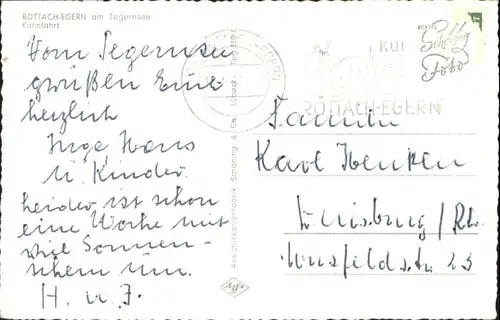 ROTTACH-EGERN am Tegernsee
Kahnfahrt
Vom Tegernsee
grüßen Euch
herzlich
Inge, Hans
u. Kinder.
Leider ist schon
eine Woche mit
viel Sonnen-
schein um.
H. u. I.
Ansichtskartenfabrik Schöning & Co., Lübeck
ECHTES
Schöning
Foto
KUR
ROTTACH-EGERN
Familie
Karl Henken
Duisburg / Rh.
23
Agfa